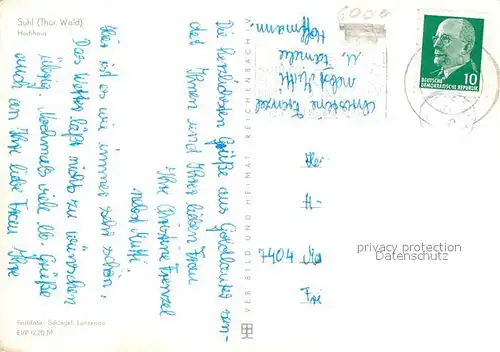 Suhl (Thür. Wald)
Hochhaus
Die herzlichsten Grüße aus Goldlauter sen-
det Ihnen und Ihrer lieben Frau
Ihre Christine Frenzel
nebst Mutti.
Hier ist es wie immer sehr schön.
Das Wetter läßt nichts zu wünschen
übrig. Nochmals viele lb. Grüße
auch an Ihre liebe Frau Ihre
Christine Frenzel
nebst Mutti
u. Familie
Hoffmann.
DEUTSCHE
DEMOKRATISCHE REPUBLIK
10
Her
A-
7404
Fri
privacy protection
Datenschutz
VEB BILD UND HEIMAT REICHENBACH I. V.
Farbfoto: Schlegel,
EVP 0,20 M